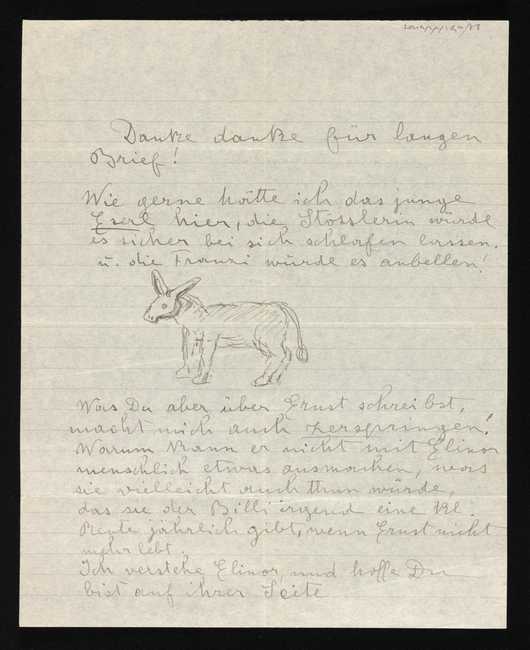 Danke danke für langen
Brief!
Wie gerne hätte ich das junge
Eserl hier, die Stosslerin würde
es sicher bei sich schlafen lassen.
u. die Franzi würde es anbellen!
Was Du aber über Ernst schreibst,
macht mich auch zerspringen!
Warum kann er nicht mit Elinor
menschlich etwas ausmachen, was
sie vielleicht auch thun würde,
das sie der Billi irgend eine kl.
Rente jährlich gibt, wenn Ernst nicht
mehr lebt.
Ich verstehe Elinor, und hoffe Du
bist auf ihrer Seite